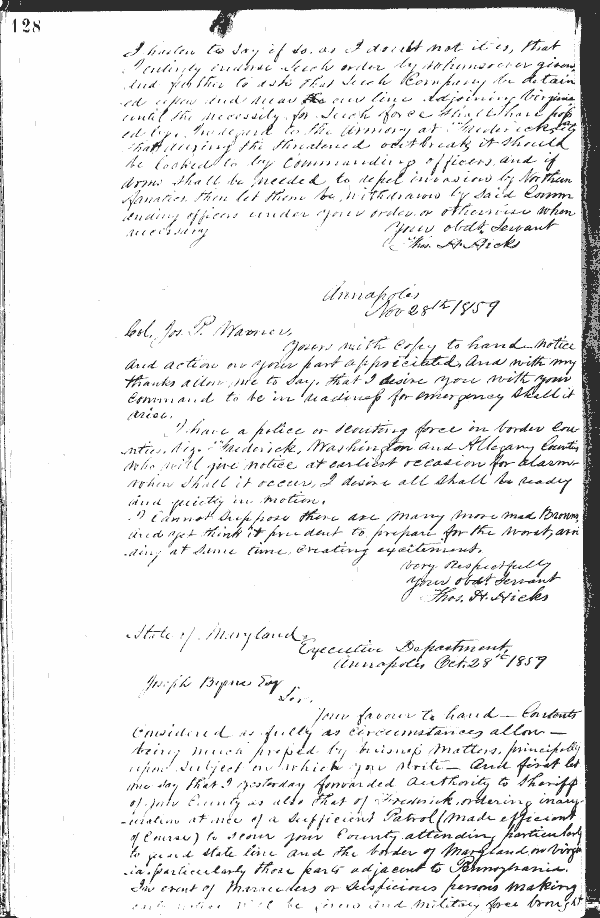 128
I hasten to say if so, as I doubt not it is, that
I entirely indorse such order by whomsoever given
and further to ask that such Company be detain
ed upon and near the our line adjoining Virginia
until the necessity for such force shall have pass
ed by. In regard to the Armory at Frederick City
that during the threatened outbreak it should
be looked to by Commanding officers, and if
arms shall be needed to repel invasion by Northern
fanatics then let them be withdrawn by said Comm
anding officers under your order, or otherwise when
necessary
Your obdt Servant
Thos. H. Hicks
Annapolis
Nov 28th 1859
Col, Jos. P. Warner,
Yours with Copy to hand notice
and action on your part appreciated, And with my
thanks allow me to say, that I desire you with your
Command to be in readiness for emergency shall it
arise.
I have a police or scouting force in border cou
nties, viz, Frederick, Washington and Allegany Counties
who will give notice at earliest occasion for alarm
when shall it occur, I desire all shall be ready
and quietly in motion.
I Cannot suppose there are many more mad Browns,
and yet think it prudent to prepare for the worst, avoi
ding at same time, creating excitement.
Very respectfully
Your obdt Servant
Thos. H. Hicks
State of Maryland,
Executive Department,
Annapolis Oct. 28th 1859
Joseph Byrnes Esq
Sir,
Your favour to hand — Contents
Considered as fully as circumstances allow —
being much pressed by business matters, principally
upon subject on which you write — And first let
me say that I yesterday forwarded authority to Sheriff
of your County as also that of Frederick, ordering inaug
uration at once of a sufficient Patrol (made efficient
of Course) to scour your County, attending particularly
to guard state line and the border of Maryland on Virgin
ia, particularly those parts adjacent to Pennsylvania.
In event of Marauders or Suspicious persons making
early notice will be given and military force brought